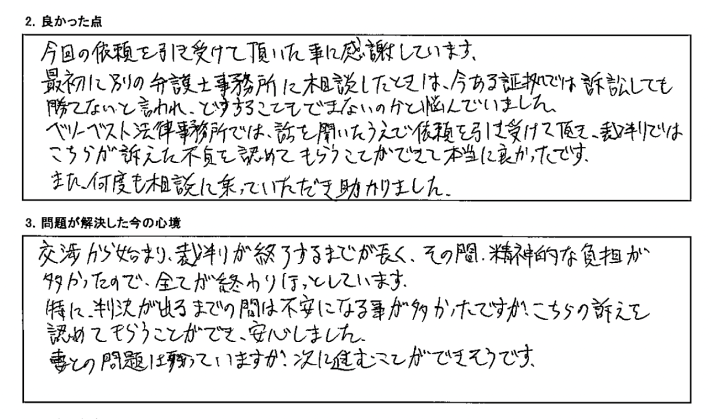 2. 良かった点
今回の依頼を引き受けて頂いた事に感謝しています。
最初に別の弁護士事務所に相談したときは、今ある証拠では訴訟しても
勝てないと言われ、どうすることもできないのかと悩んでいました。
ベリーベスト法律事務所では、話を聞いたうえで依頼を引き受けて頂き、裁判では
こちらが訴えた不貞を認めてもらうことができて本当に良かったです。
また、何度も相談に乗っていただき助かりました。
3. 問題が解決した今の心境
交渉から始まり、裁判が終了するまでが長く、その間、精神的な負担が
多かったので、全てが終わりほっとしています。
特に、判決が出るまでの間は不安になる事が多かったですが、こちらの訴えを
認めてもらうことができ、安心しました。
妻との問題は残っていますが、次に進むことができそうです。